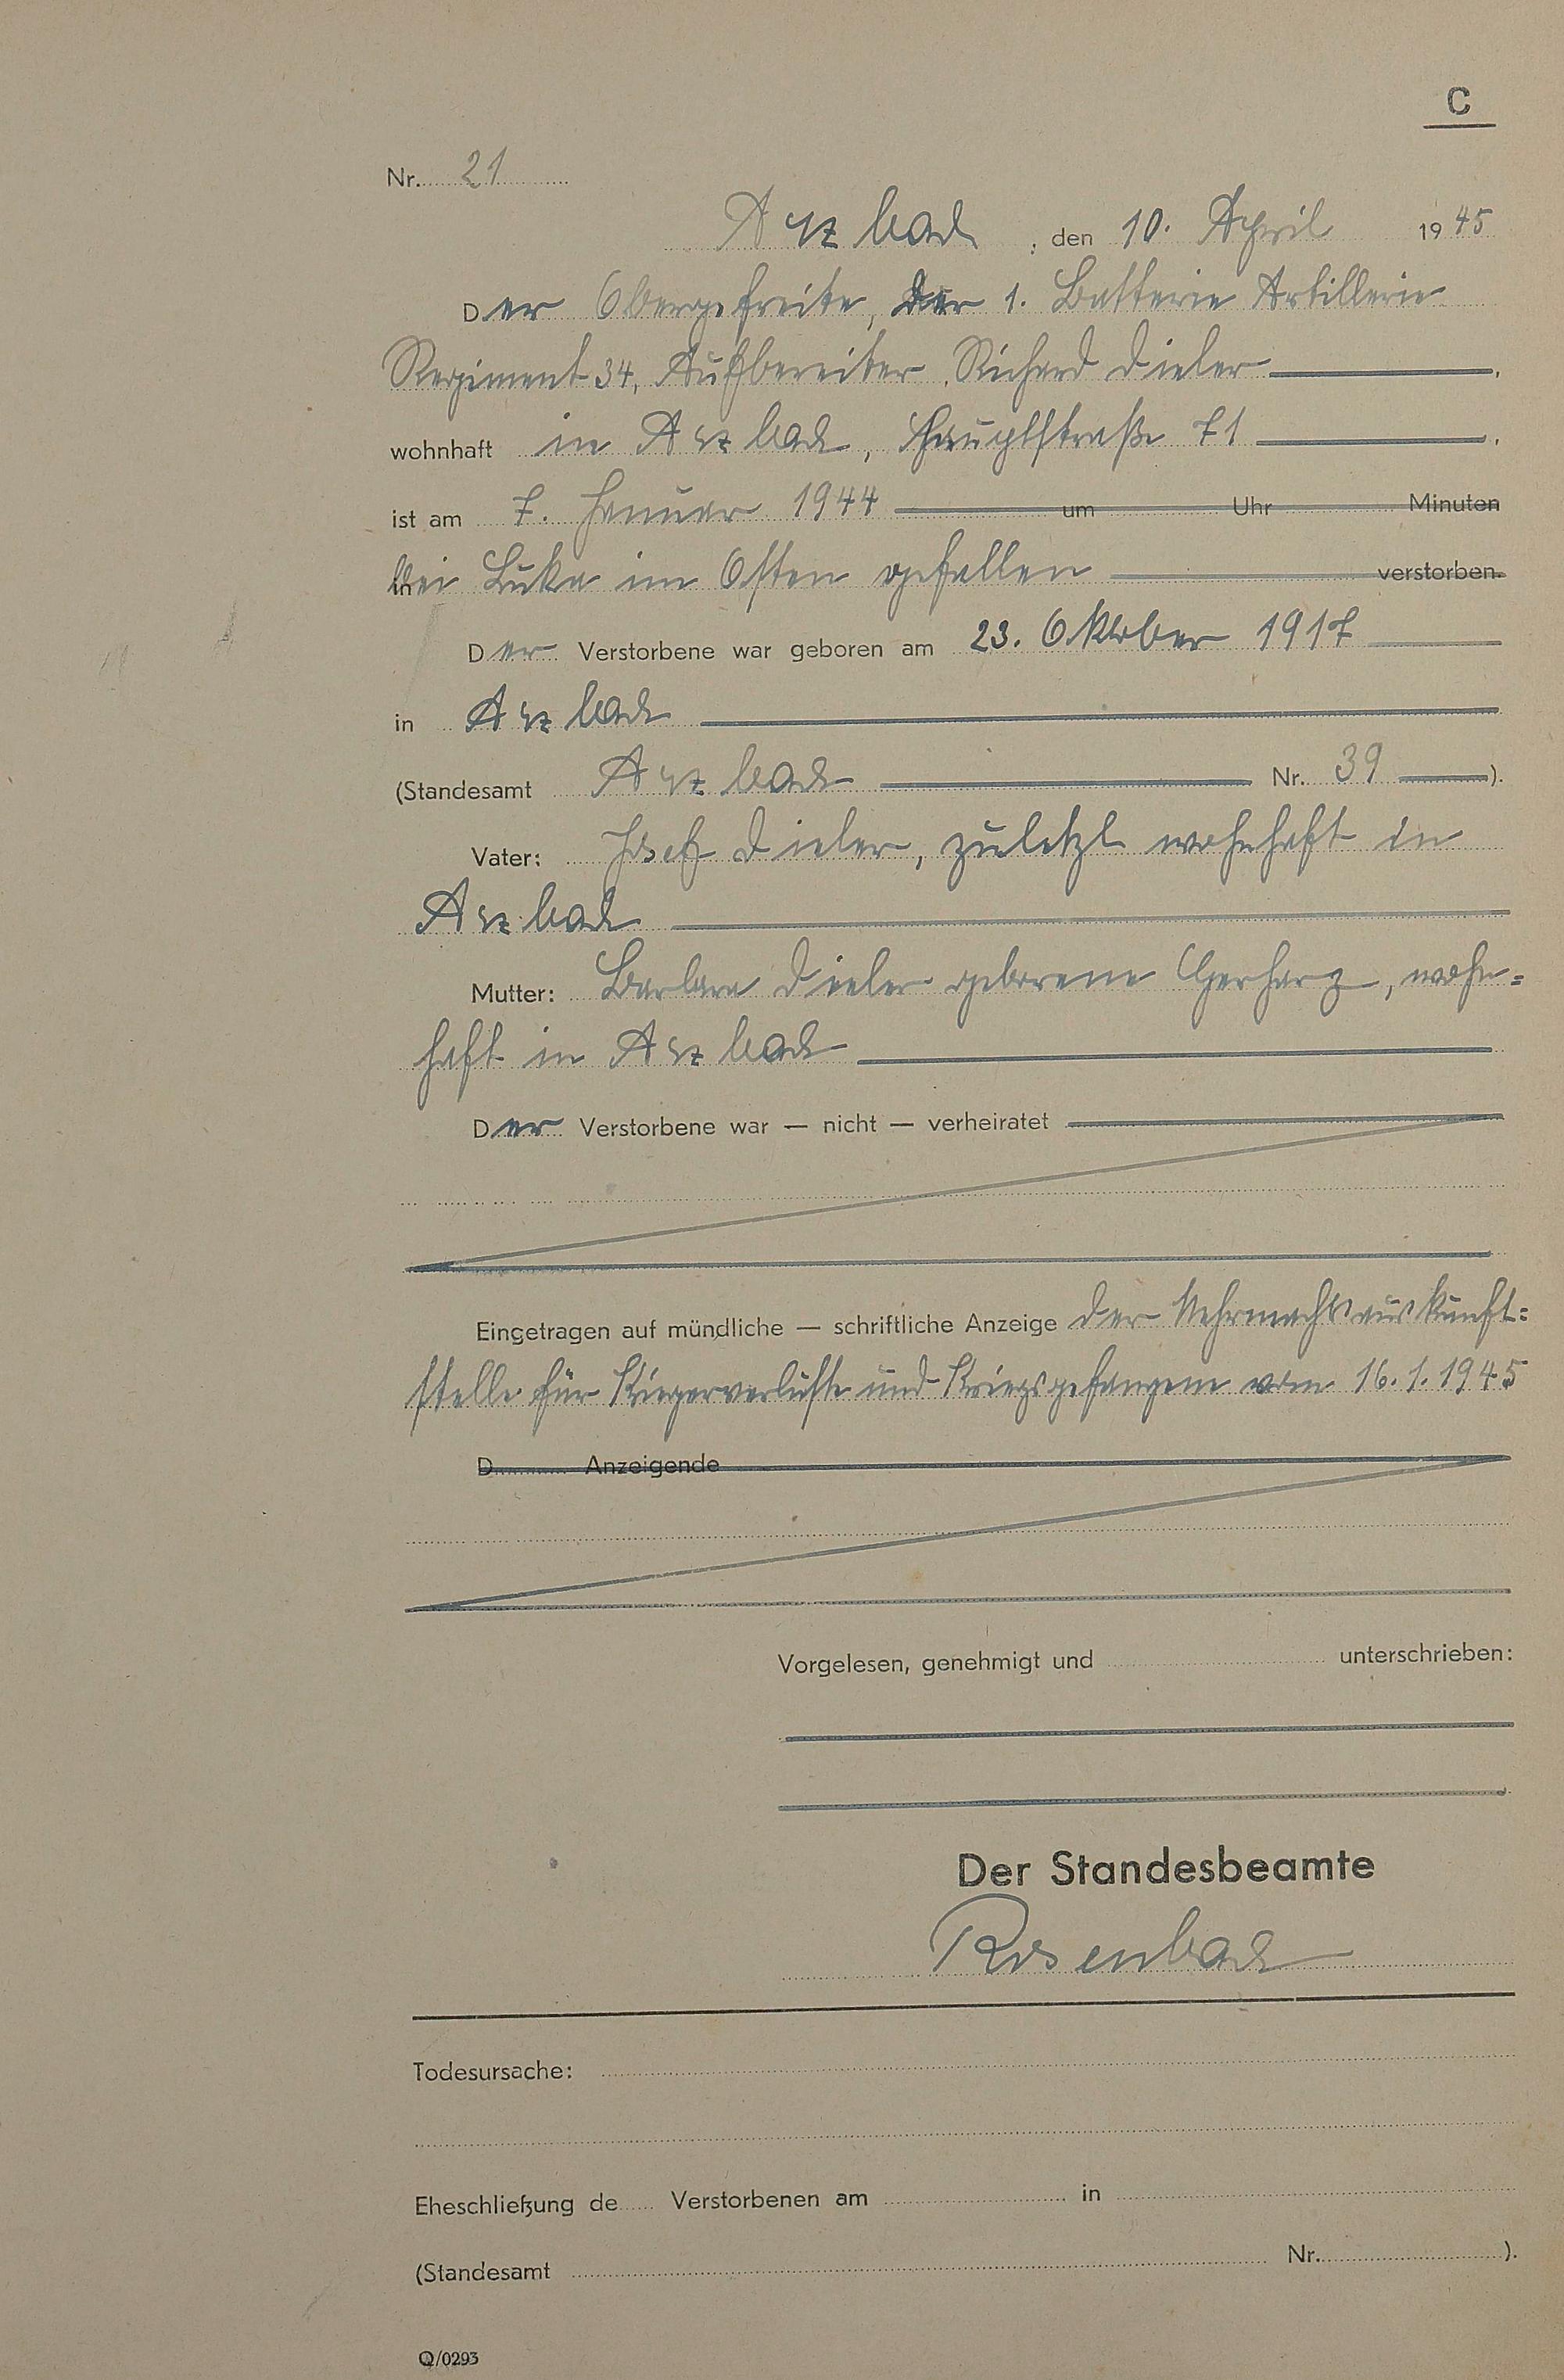 C
Nr. 21
Arzbach, den 10. April 1945
Der Obergefreite, der 1. Batterie Artillerie
Regiment 34, Aufbereiter Richard Dieler,
wohnhaft in Arzbach, Hauptstraße 71,
ist am 7. Januar 1944 um Uhr Minuten
bei Luka im Osten gefallen verstorben.
Der Verstorbene war geboren am 23. Oktober 1917
in Arzbach
(Standesamt Arzbach Nr. 39).
Vater: Josef Dieler, zuletzt wohnhaft in
Arzbach
Mutter: Barbara Dieler geborene Gerharz, wohn=
haft in Arzbach
Der Verstorbene war — nicht — verheiratet
Eingetragen auf mündliche — schriftliche Anzeige der Wehrmachtsauskunft=
stelle für Kriegerverluste und Kriegsgefangene vom 16.1.1945
D Anzeigende
Vorgelesen, genehmigt und unterschrieben:
Der Standesbeamte
Rosenbach
Todesursache:
Eheschließung de Verstorbenen am in
(Standesamt Nr. ).
Q/0293